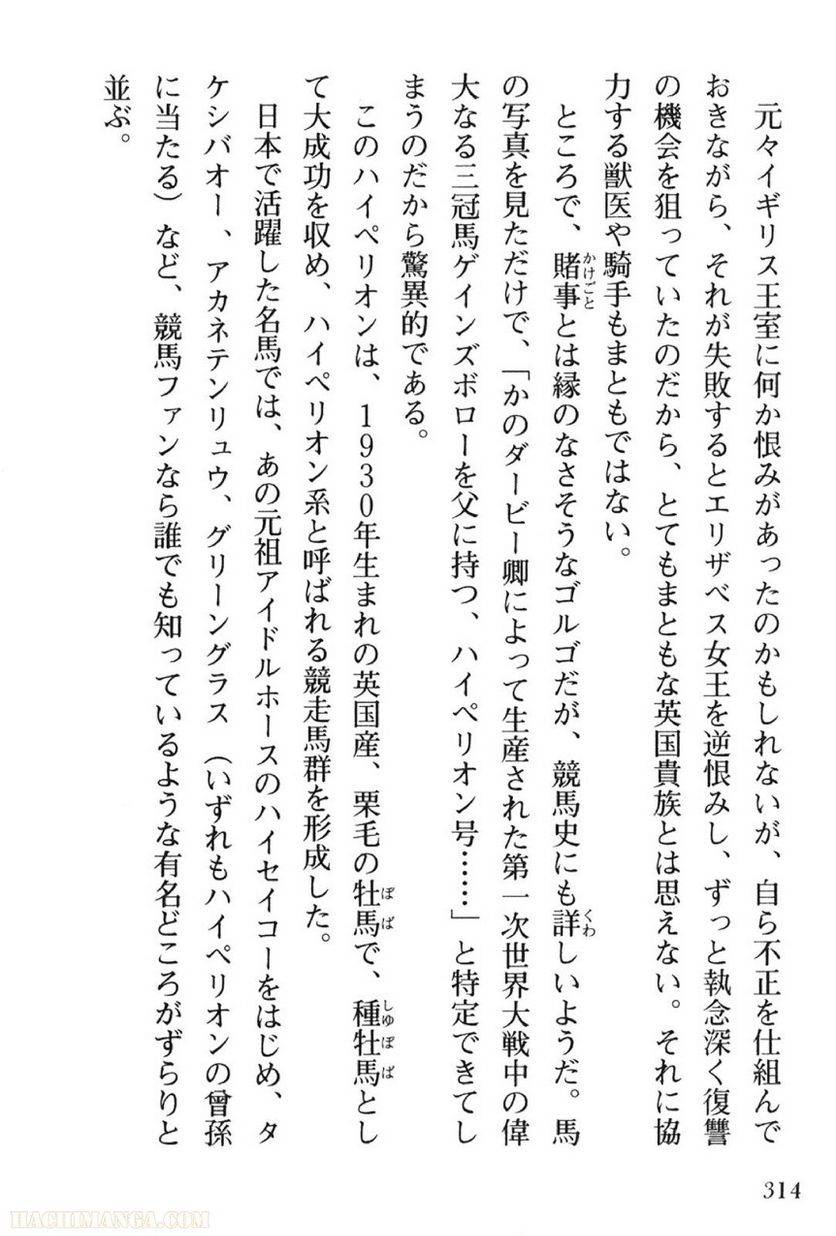 元々イギリス王室に何か恨みがあったのかもしれないが、自ら不正を仕組んで
おきながら、それが失敗するとエリザベス女王を逆恨みし、ずっと執念深く復讐
の機会を狙っていたのだから、とてもまともな英国貴族とは思えない。それに協
力する獣医や騎手もまともではない。
ところで、賭事とは縁のなさそうなゴルゴだが、競馬史にも詳しいようだ。馬
の写真を見ただけで、「かのダービー卿によって生産された第一次世界大戦中の偉
大なる三冠馬ゲインズボローを父に持つ、ハイペリオン号……」と特定できてし
まうのだから驚異的である。
このハイペリオンは、1930年生まれの英国産、栗毛の牡馬で、種牡馬とし
て大成功を収め、ハイペリオン系と呼ばれる競走馬群を形成した。
日本で活躍した名馬では、あの元祖アイドルホースのハイセイコーをはじめ、タ
ケシバオー、アカネテンリュウ、グリーングラス（いずれもハイペリオンの曾孫
に当たる）など、競馬ファンなら誰でも知っているような有名どころがずらりと
並ぶ。
314
HACHIMANGA.COM